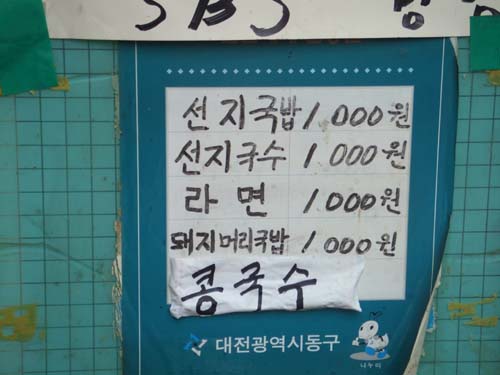 SBS
선지국밥 1.000원
선지국수 1.000원
라면 1.000원
돼지머리국밥 1000원
콩국수
대전광역시동구
나누리